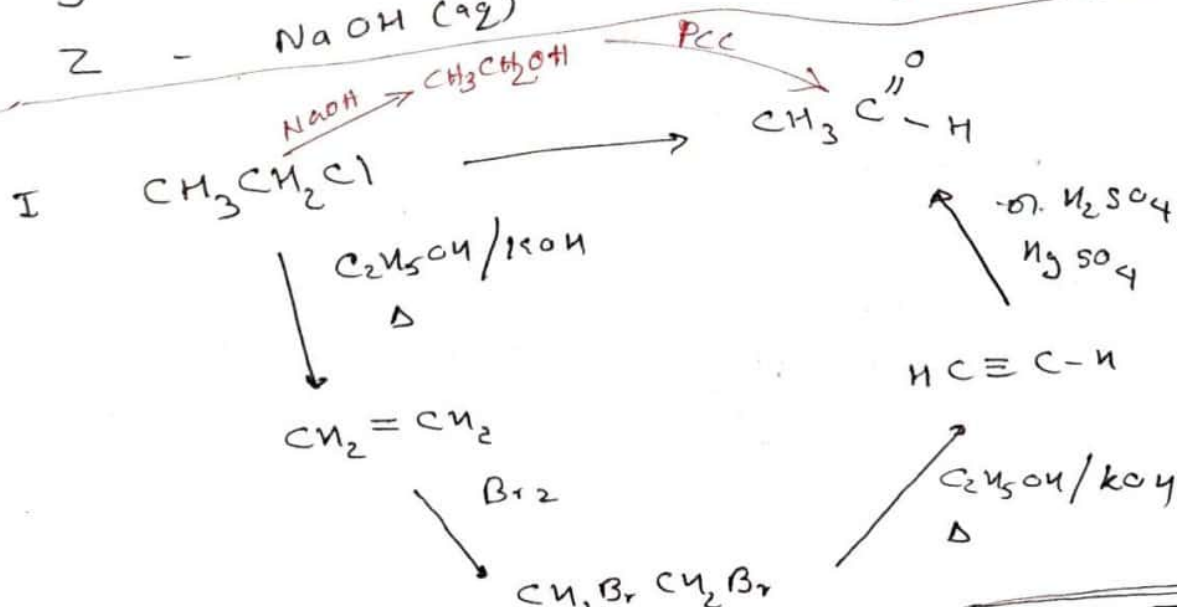 2 - NaOH (aq)
NaOH CH3CH2OH PCC
CH3 C=O - H
I CH3CH2Cl
C2H5OH/KOH
Δ
dil. H2SO4
HgSO4
CH2 = CH2
HC≡C-H
Br2
C2H5OH/KOH
Δ
CH2Br CH2Br